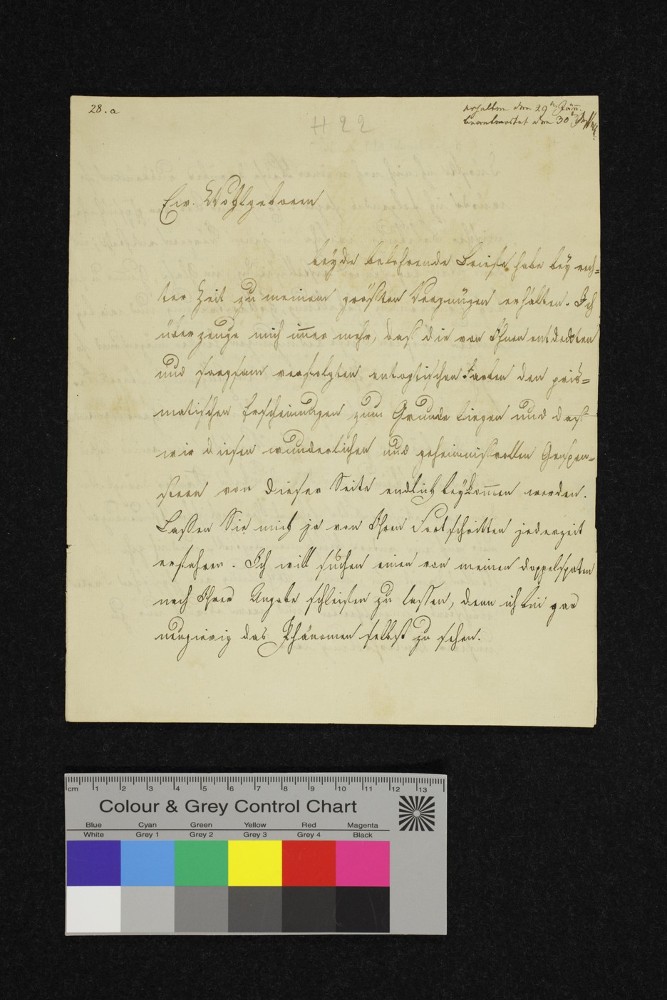 28.a
erhalten den 29ten Jan.
beantwortet den 30
H 22
Ew. Wohlgeboren
beyde belehrende Briefe habe bey rech-
ter Zeit zu meinem größten Vergnügen erhalten. Ich
überzeuge mich im̅er mehr, daß die von Ihnen entdeckten
und sorgsam verfolgten entoptischen Farben den pris-
matischen Erscheinungen zum Grunde liegen und daß
wir diesen wunderlichen und geheimnißvollen Gespen-
stern von dieser Seite endlich beykom̅en werden.
Lassen Sie mich ja von Ihren Fortschritten jederzeit
erfahren. Ich will suchen einen von meinen Doppelspaten
nach Ihrer Angabe schleifen zu lassen, denn ich bin gar
neugierig das Phänomen selbst zu sehen.
cm 1 2 3 4 5 6 7 8 9 10 11 12 13
Colour & Grey Control Chart
Blue Cyan Green Yellow Red Magenta
White Grey 1 Grey 2 Grey 3 Grey 4 Black